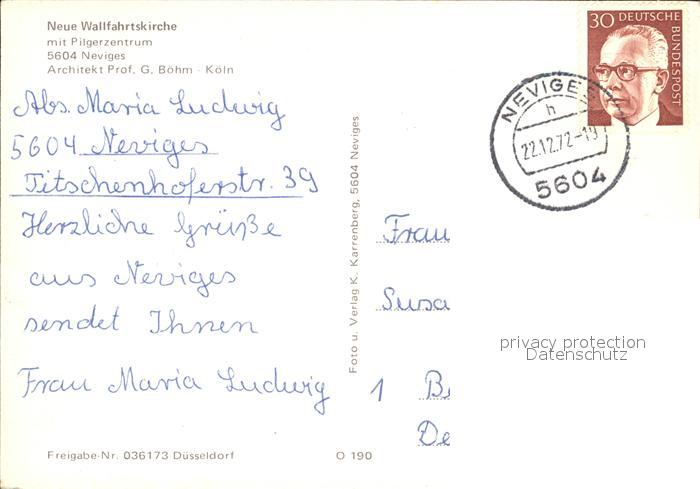 Neue Wallfahrtskirche
mit Pilgerzentrum
5604 Neviges
Architekt Prof. G. Böhm · Köln
Abs. Maria Ludwig
5604 Neviges
Titschenhoferstr. 39
Herzliche Grüße
aus Neviges
sendet Ihnen
Frau Maria Ludwig
Freigabe-Nr. 036173 Düsseldorf
O 190
Foto u. Verlag K. Karrenberg, 5604 Neviges
30 DEUTSCHE
BUNDESPOST
NEVIGES
h
22.12.72-19
5604
Frau
Susa
privacy protection
Datenschutz
1 B
De